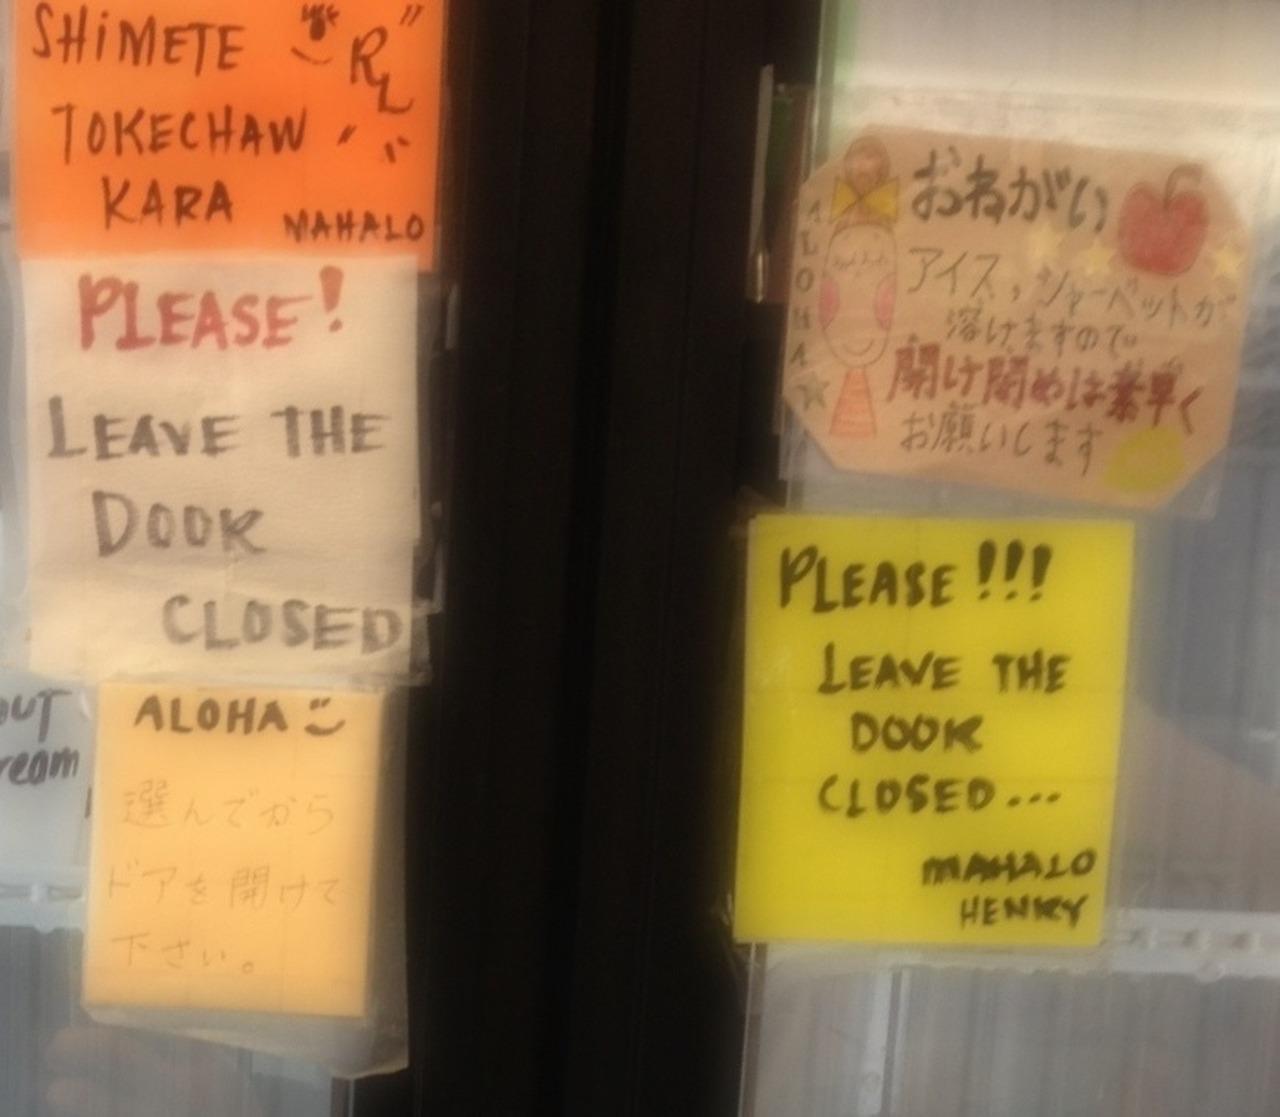 SHIMETE
TOKECHAW
KARA
MAHALO
PLEASE!
LEAVE THE
DOOR
CLOSED
ALOHA
選んでから
ドアを開けて
下さい。
OUT
ALOHA
おねがい
アイス,シャーベットが
溶けますので
開け閉めは素早く
お願いします
PLEASE!!!
LEAVE THE
DOOR
CLOSED...
MAHALO
HENRY